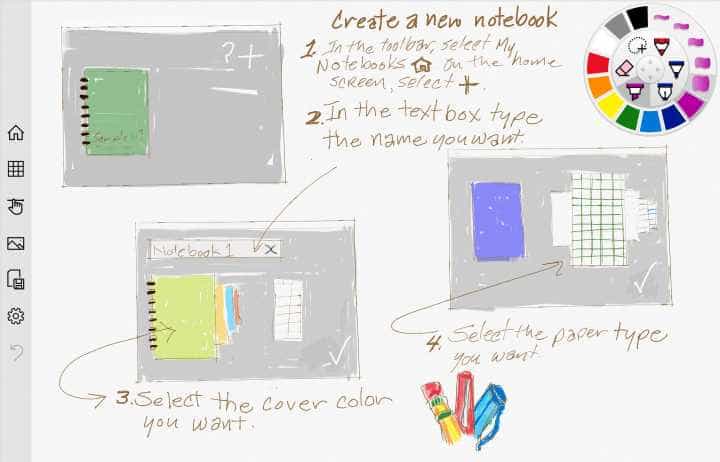 Create a new notebook
1. In the toolbar, select My
Notebooks on the home
screen, select +.
2. In the text box type
the name you want.
? +
Sample 1
Notebook 1 X
3. Select the cover color
you want.
4. Select the paper type
you want